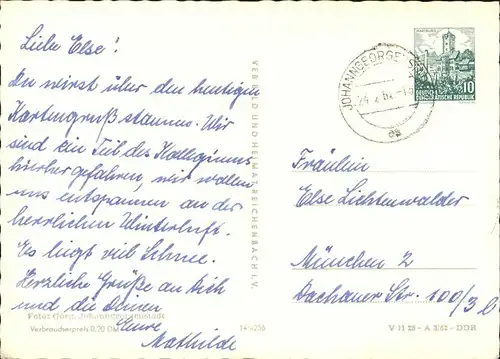 Liebe Else!
Du wirst über den heutigen
Kartengruß staunen. Wir
sind ein Teil des Kollegiums
hierher gefahren, wir wollen
uns entspannen an der
herrlichen Winterluft.
Es liegt viel Schnee.
Herzliche Grüße an Dich
und die Deinen
Eure
Mathilde
Foto: Görg, Johanngeorgenstadt
Verbraucherpreis 0,20 DM
145/236
VEB BILD UND HEIMAT REICHENBACH I. V.
JOHANNGEORGENST
24.2.62
WARTBURG
10
DEUTSCHE DEMOKRATISCHE REPUBLIK
Fräulein
Else Lichtenwalder
München 2
Dachauer Str. 100/3 l
V 11 28 - A 3/61 - DDR